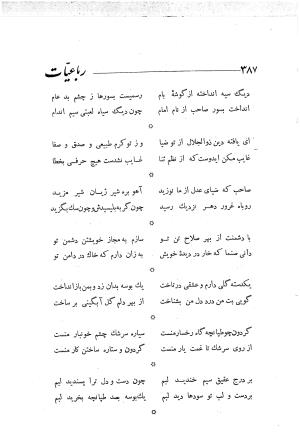 ۳۸۷
رباعیّات
دیگ سیه انداخته از گوشهٔ بام
رسمیست بسورها ز چشم بد عام
انداخت بسور صاحب از نام امام
چون دیگ سیاه لعبتی سیم اندام
ای یافته دین ذوالجلال از تو ضیا
و ز تو کرم طبیعی و صدق و صفا
غایب مکن ایدوست که از نظم ثنا
غایب نشدست هیچ حرفی بخطا
صاحب که ضیای عدل از ما توزید
آهو بره شیر ژیان شیر مزید
روباه غرور دهر نزدیک رسید
چون گربه بلیسیدش و چون سگ بگزید
با دشمنت از بهر صلاح تن تو
سازم به مجاز خویشتن دشمن تو
دانی صنما که خار در دیدهٔ خویش
آن را که خاک در دامن تو
یکدسته گلی دارم و عشقی در تاخت
یک بوسه بدان زد و بمن باز انداخت
گویی بت من درد دل من بشناخت
بر بهر دلم گل آبگینی بر ساخت
گردون چو طپانچه گاه رخساره منست
سیاره سرشک چشم خونبار منست
از روی سرشک تا غمت یار منست
گردون و ستاره ساختن کار منست
بر درج عقیق سیم خندید لبم
چون دست و دل ترا پسندید لبم
بر دست و لب تو سودها دید لبم
یک بوسه بعد طپانچه بخرید لبم